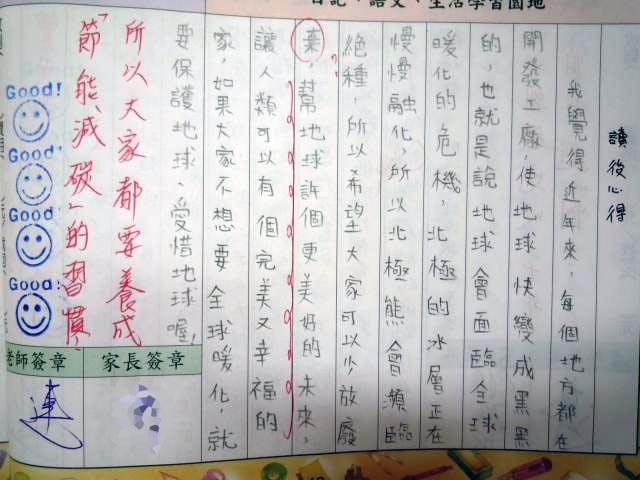 日記、語文、生活學習園地
讀後心得
我覺得近年來,每個地方都在
開發工廠,使地球快變成黑黑
的,也就是說地球會面臨全球
暖化的危機,北極的冰層正在
慢慢融化,所以北極熊會瀕臨
絕種,所以希望大家可以少放廢
棄,幫地球許個更美好的未來,
讓人類可以有個完美又幸福的
家,如果大家不想要全球暖化,就
要保護地球、愛惜地球喔!
所以大家都要養成
「節能減碳」的習慣。
Good!
Good!
Good!
Good!
家長簽章
老師簽章
連